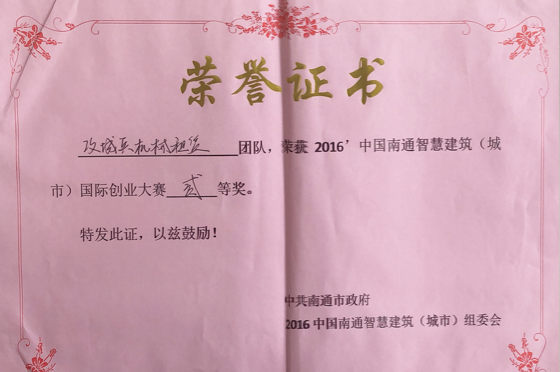 荣誉证书
攻城兵机械租赁团队，荣获 2016’中国南通智慧建筑（城
市）国际创业大赛贰等奖。
特发此证，以兹鼓励！
中共南通市政府
2016 中国南通智慧建筑（城市）组委会